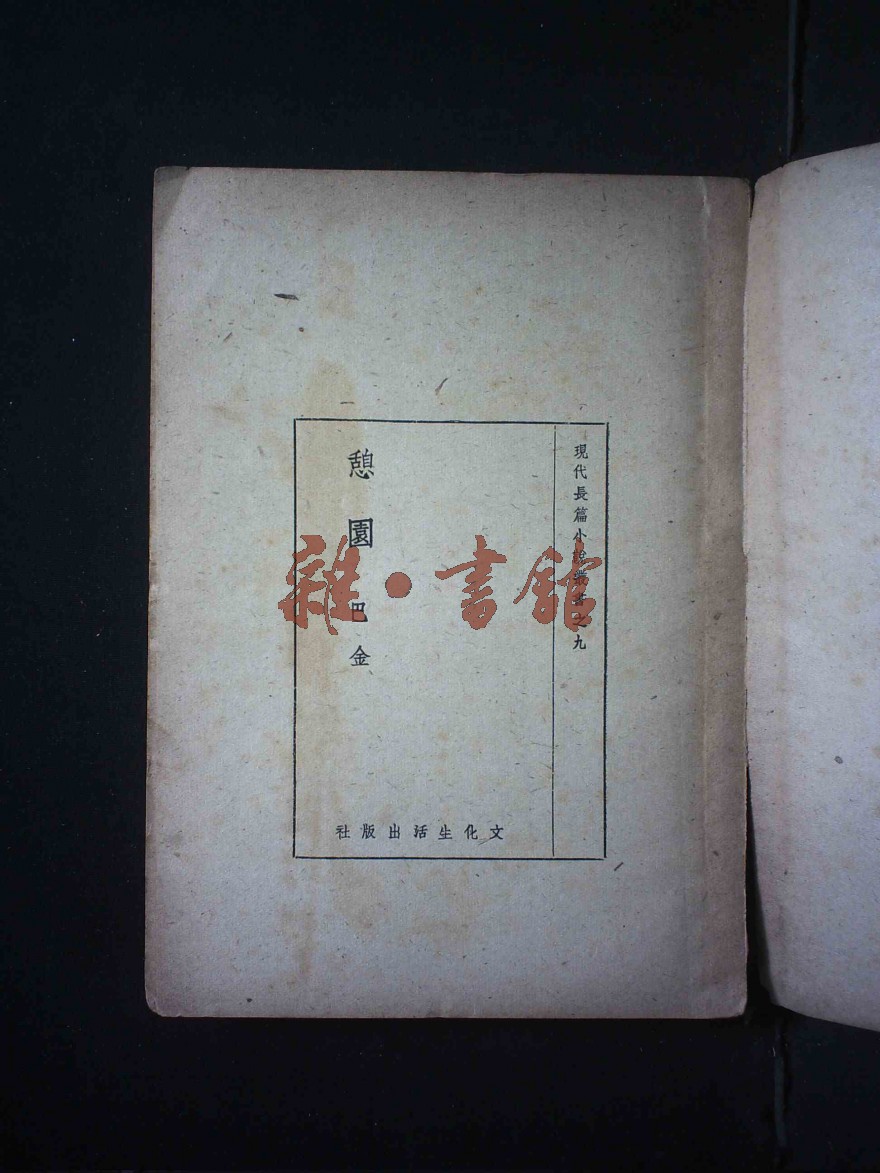 現代長篇小說叢書之九
憩園
巴金
文化生活出版社
雜·書館